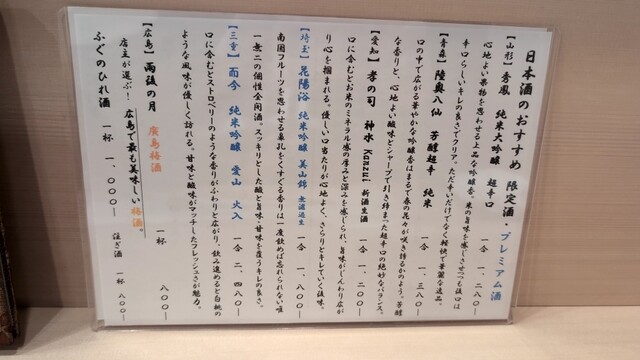 日本酒のおすすめ 限定酒・プレミアム酒
【山形】 秀鳳 純米大吟醸 超辛口 一合 一、二八〇―
心地よい果物を思わせる上品な吟醸香。米の旨味を感じさせつつ後口は
辛口らしいキレの良さでクリア。ただ辛いだけでなく軽快で華麗な逸品。
【青森】 陸奥八仙 芳醇超辛 純米 一合 一、三八〇―
口の中で広がる華やかな吟醸香はまるで春の花々が咲き誇るかのよう。芳醇
な香りと、心地よい酸味とシャープで引き締まった超辛口の絶妙なバランス。
【愛知】 孝の司 神水 Kanzui 新酒生酒 一合 一、二〇〇―
口に含むとお米のミネラル感の厚みと深みを感じられ、旨味がじんわり広が
り心を掴まれる。優しい口当たりが心地よく、さらりとキレていく後味。
【埼玉】 花陽浴 純米吟醸 美山錦 無濾過生 一合 一、八〇〇―
南国フルーツを思わせる鼻孔をくすぐる香りは一度飲めば忘れられない唯
一無二の個性全開酒。スッキリとした酸と旨味・甘味を覆うキレの良さ。
【三重】 而今 純米吟醸 愛山 火入 一合 二、四八〇―
口に含むとストロベリーのような香りがふわりと広がり、飲み進めると白桃の
ような風味が優しく訪れる。甘味と酸味がマッチしたフレッシュさが魅力。
【広島】 雨後の月 廣島梅酒 一杯 八〇〇―
店主が選ぶ！広島で最も美味しい梅酒。
ふぐのひれ酒 一杯 一、〇〇〇― 注ぎ酒 一杯 八〇〇―